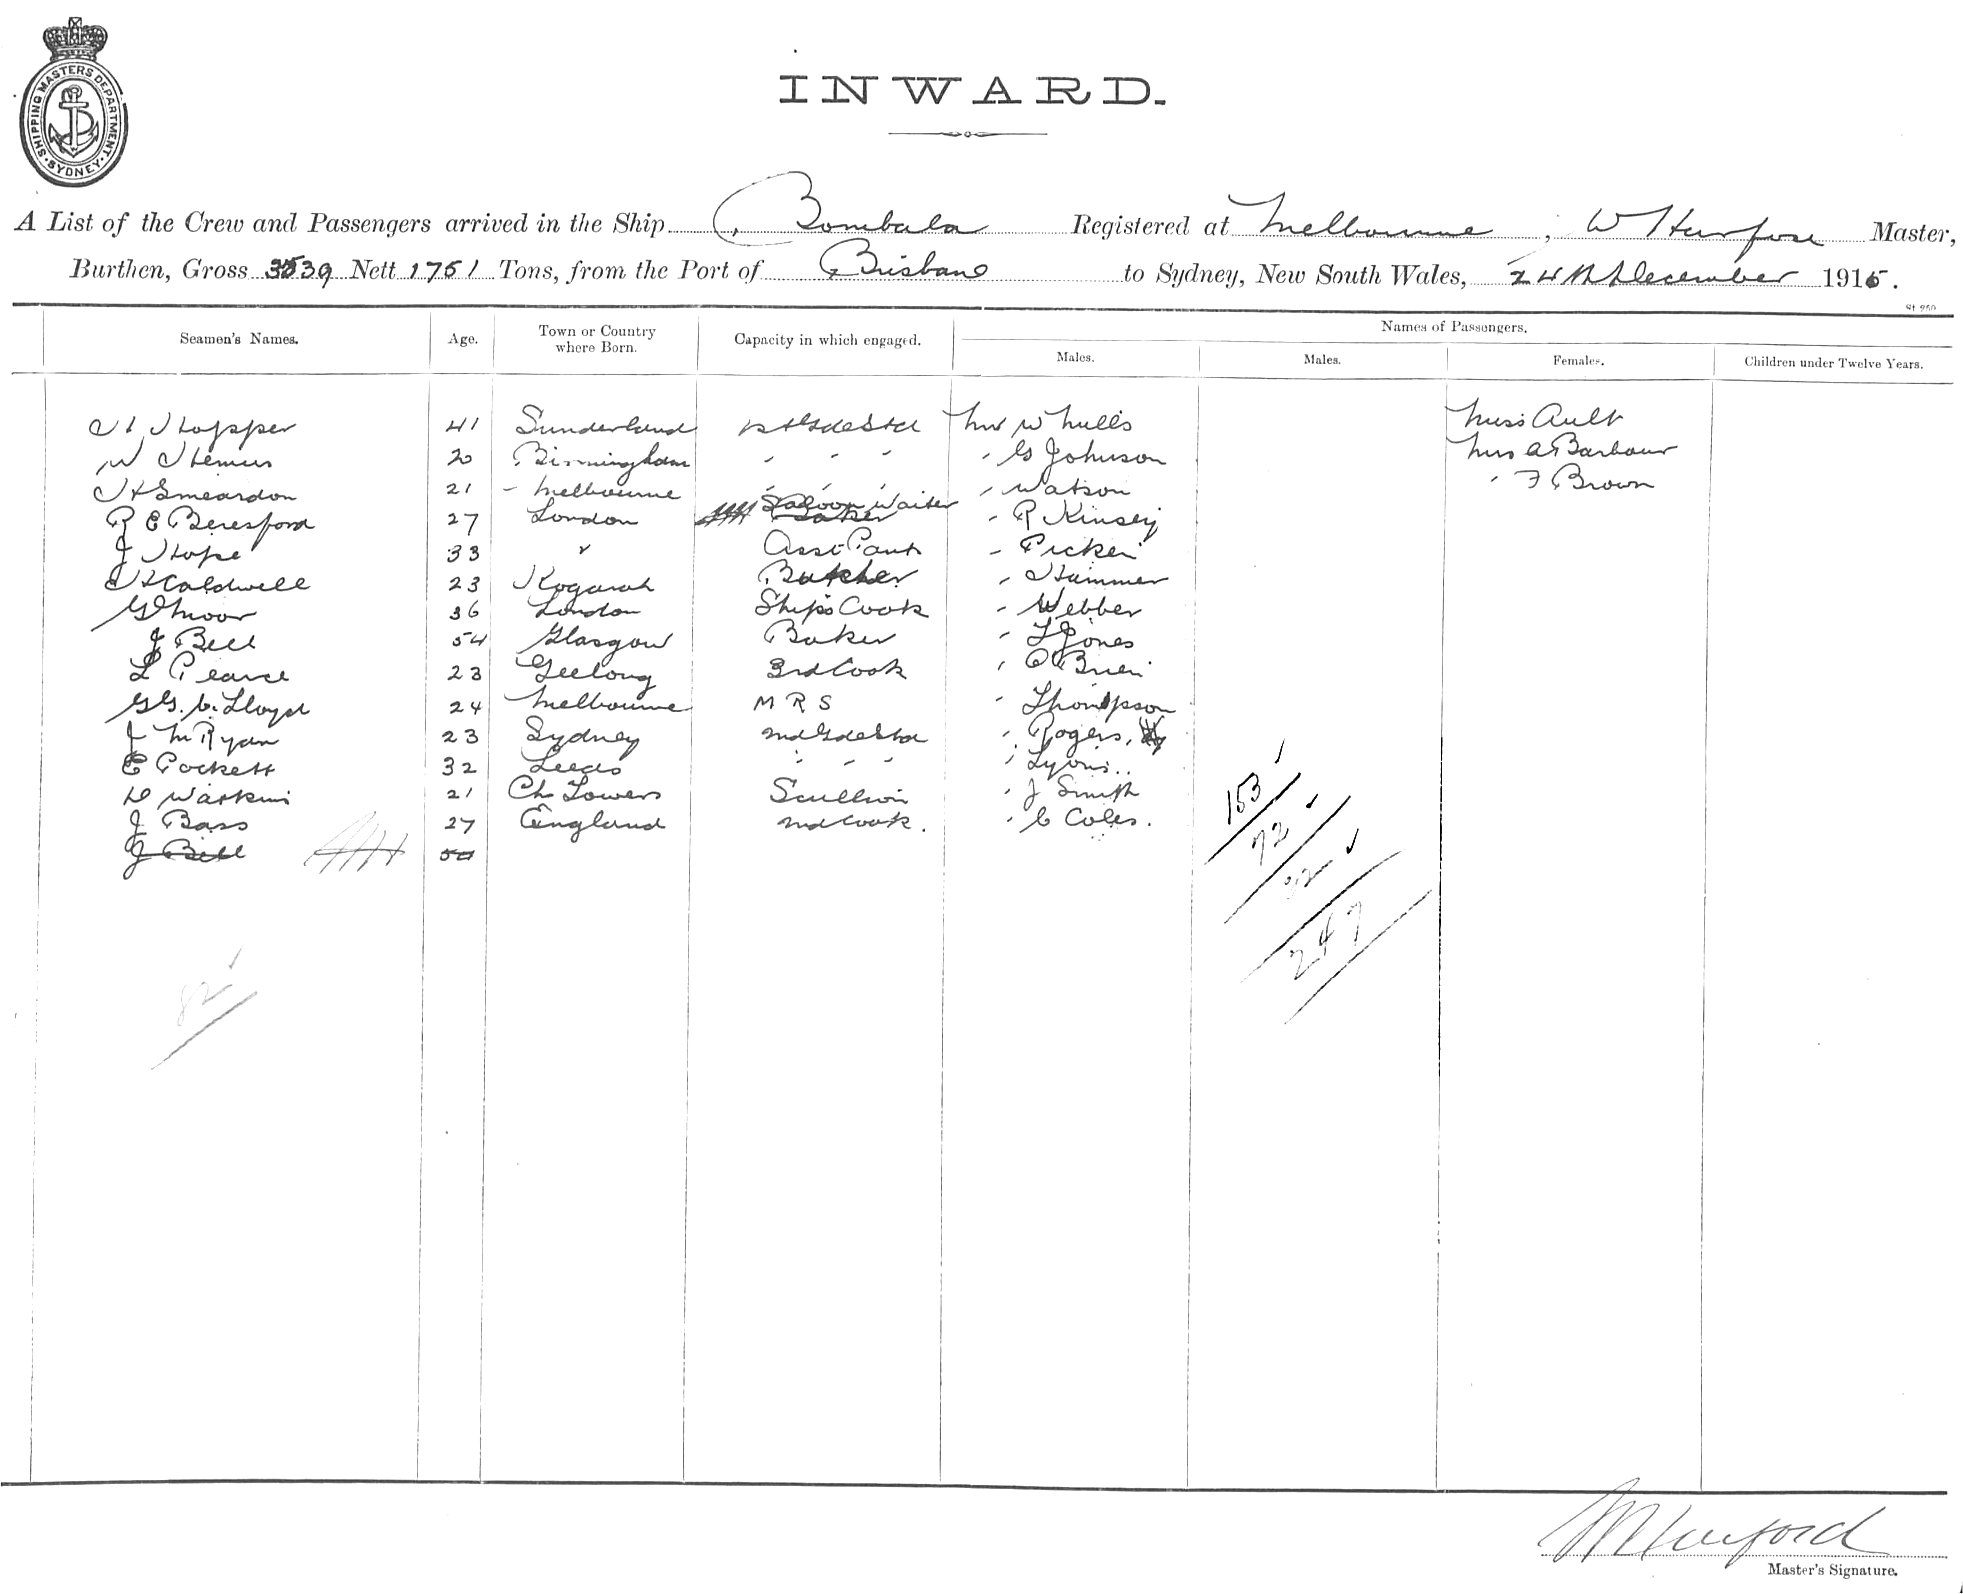 SHIPPING MASTERS DEPARTMENT · SYDNEY ·
INWARD.
A List of the Crew and Passengers arrived in the Ship Bombala Registered at Melbourne, W Hurford Master,
Burthen, Gross 3539 Nett 1751 Tons, from the Port of Brisbane to Sydney, New South Wales, 24th December 1915.
St 950
Names of Passengers.
Seamen's Names. Age. Town or Country where Born. Capacity in which engaged. Males. Males. Females. Children under Twelve Years.
H Hopper 41 Sunderland 1st Gde Std Mr W Mills Miss Ault
W Hemus 20 Birmingham " " " " G Johnson Mrs A Barbour
H Smeardon 21 - Melbourne " " " " Watson " F Brown
R E Beresford 27 London Baker Saloon Waiter " R Kinsey
J Hope 33 " Asst Pant " Picken
H Caldwell 23 Kogarah Butcher " Hammer
G Moor 36 London Ship's Cook " Webber
J Bell 54 Glasgow Baker " T Jones
L Pearce 23 Geelong 3rd Cook " O'Brien
G G. C. Lloyd 24 Melbourne M R S " Thompson
J M Ryan 23 Sydney 2nd Gde Std " Rogers,
E Pockett 32 Leeds " " " " Lyons..
D Watkins 21 Ch Towers Scullion " J Smith
J Bass 27 England 2nd Cook. " C Coles.
J Bell 54
153
72
22
247
82
W Hurford
Master's Signature.